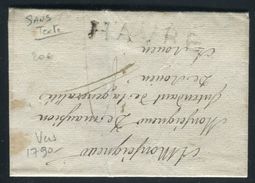 SANS
Texte
HAVRE
Vers
1790
A Monseigneur
Monseigneur De
Intendant de la generalité
De Rouen
A Rouen